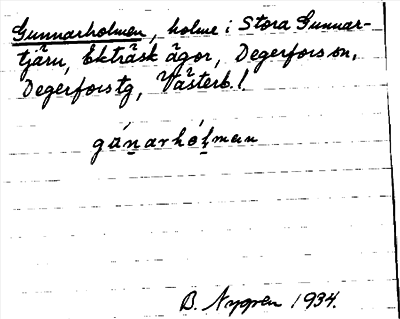 Gunnarholmen, holme i Stora Gunnar-
tjärn, Ekträsk ägor, Degerfors sn,
Degerfors tg, Västerb. l
gánarhólman
B. Nygren 1934.